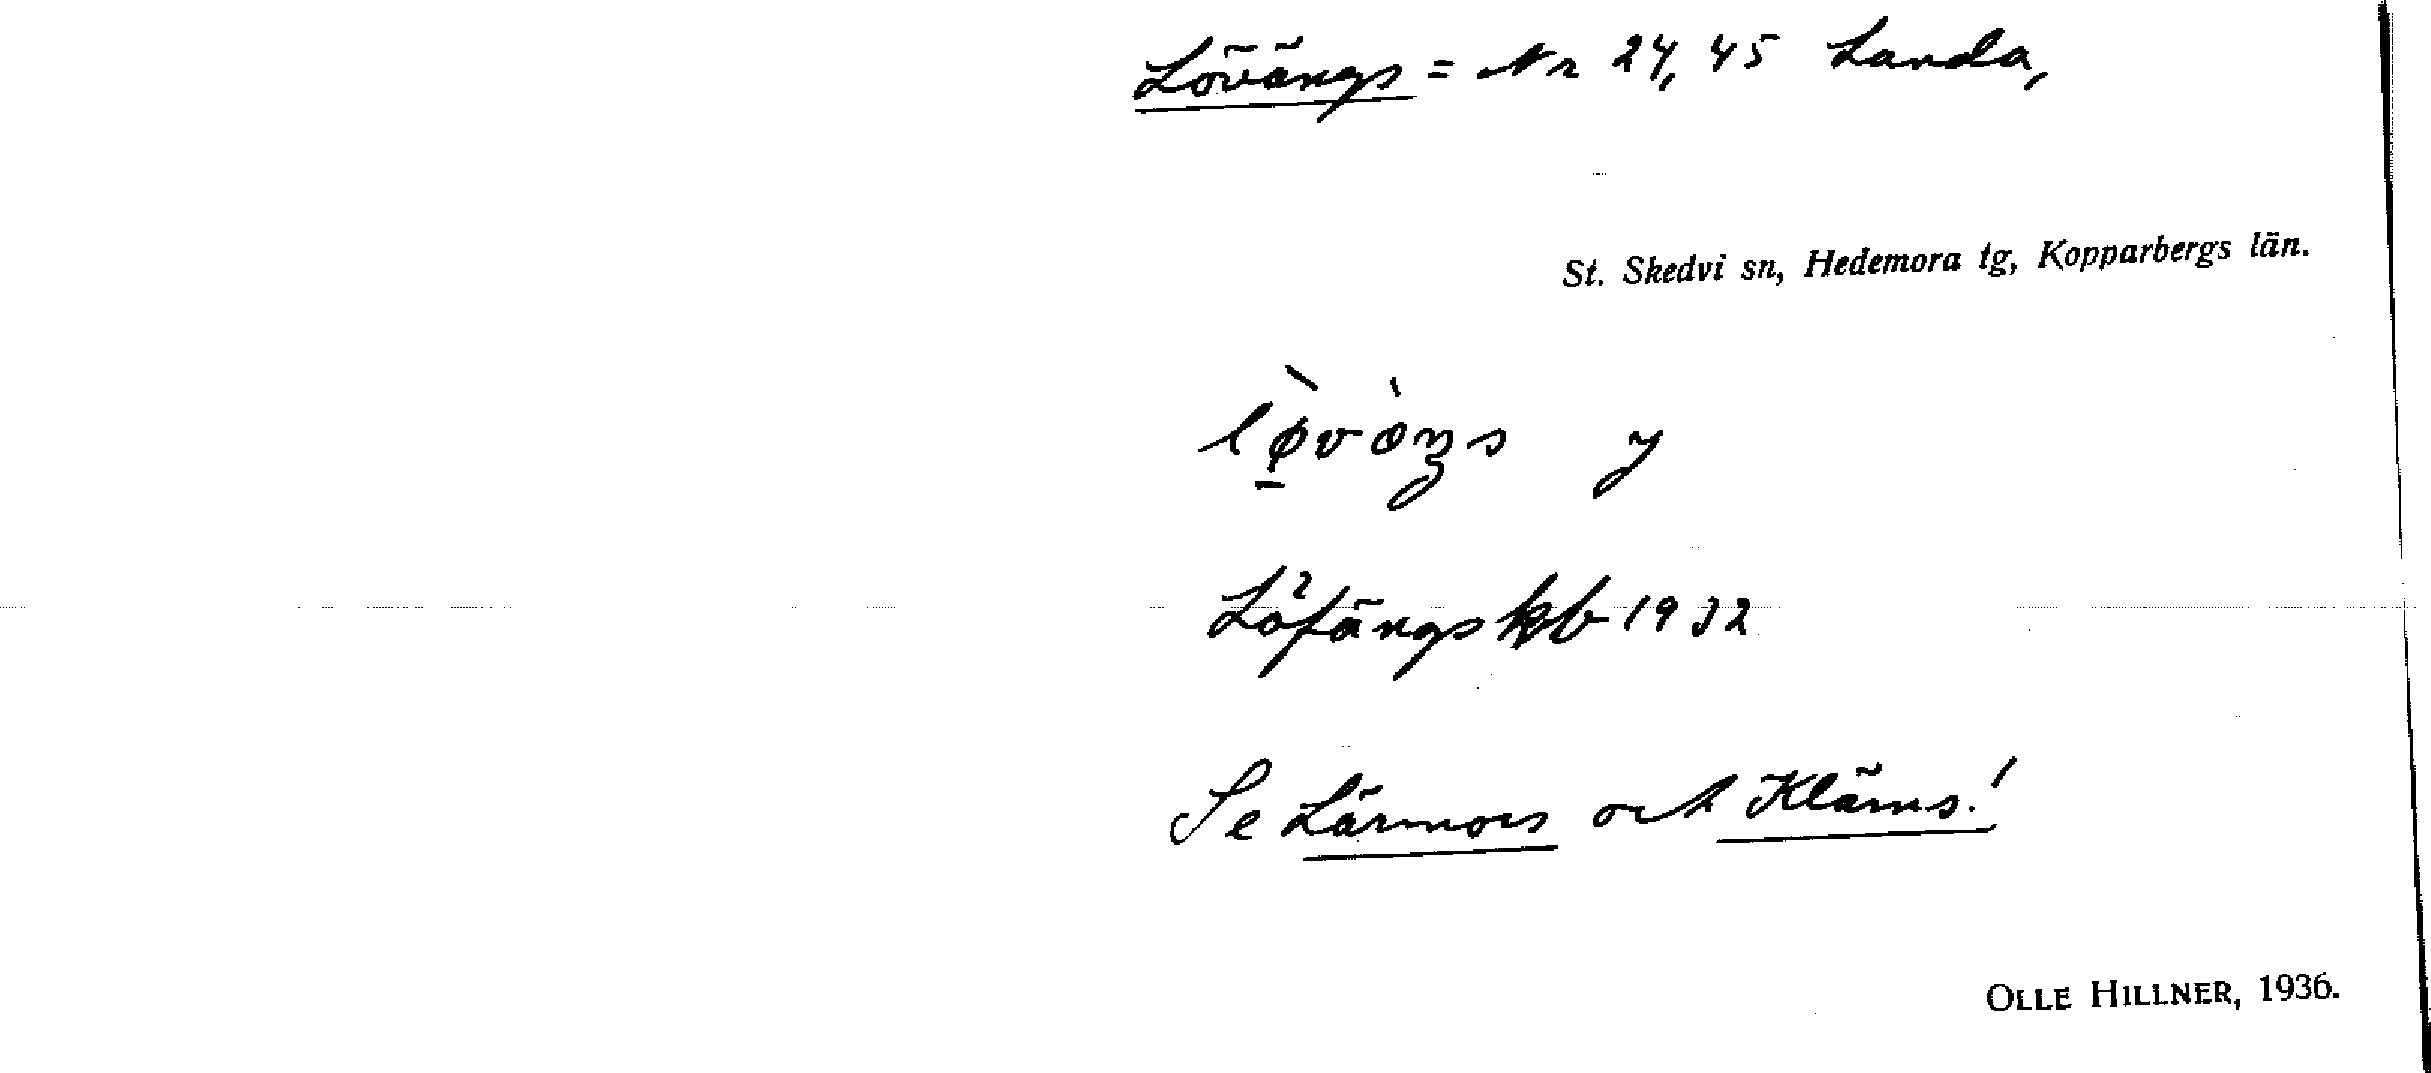 Lövängs = Nr 24, 45 Landa,
St. Skedvi sn, Hedemora tg, Kopparbergs län.
Löfängs kb 1932
Se Lärmors och Kläms!
OLLE HILLNER, 1936.